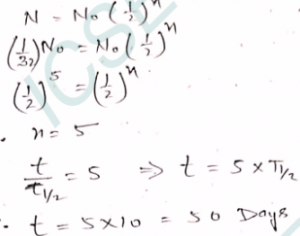 N = N₀(1/2)ⁿ
(1/32)N₀ = N₀(1/2)ⁿ
(1/2)⁵ = (1/2)ⁿ
. n = 5
t/T1/2 = 5 ⇒ t = 5 × T1/2
. t = 5×10 = 50 Days
ICSE